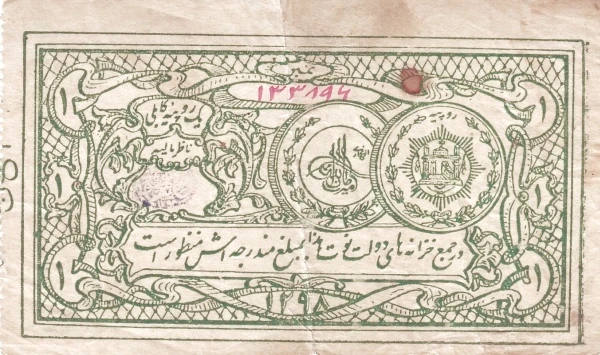 نمبر
۱۳۳۸۹۶
۱ ۱
یک روپیه کابلی
ناظر مالیه
روپیه
۱ ۱
در جمع خزانه های دولت نوت هذا بمبلغ مندرجه اش منظور است
۱ ۱
۱۲۹۸